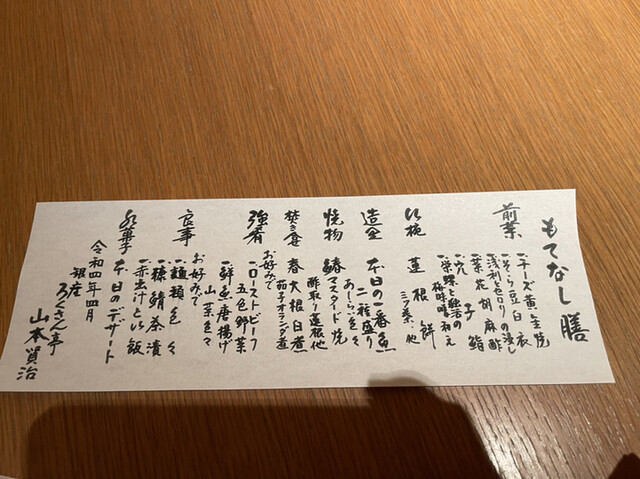 もてなし膳
前菜
一、チーズ黄金焼
一、そら豆白衣
一、浅利と色々の浸し
一、菜花胡麻酢
一、穴子鮨
一、栄螺と独活の
梅味噌和え
蓮根餅
三つ葉、他
造里
本日の一番魚
二種盛り
あしらい色々
焼物
鰆マスタード焼
酢取り蓮根他
焚き合
春大根白煮
茄子オランダ煮
強肴
お好みで
一、ローストビーフ
五色野菜
一、鮮魚唐揚げ
山菜色々
食事
お好みで
一、麺類色々
一、棒鯖茶漬
一、赤出汁とい飯
水菓子
本日のデザート
令和四年四月
銀座
ろくさん亭
山本賢治